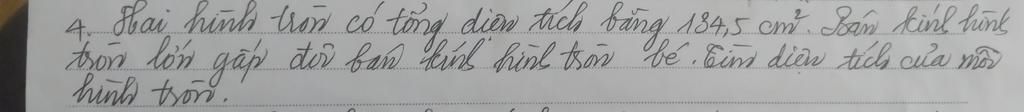 4. Hai hình tròn có tổng diện tích bằng 184,5 cm². Bán kính hình
tròn lớn gấp đôi bán kính hình tròn bé. Tìm diện tích của mỗi
hình tròn.